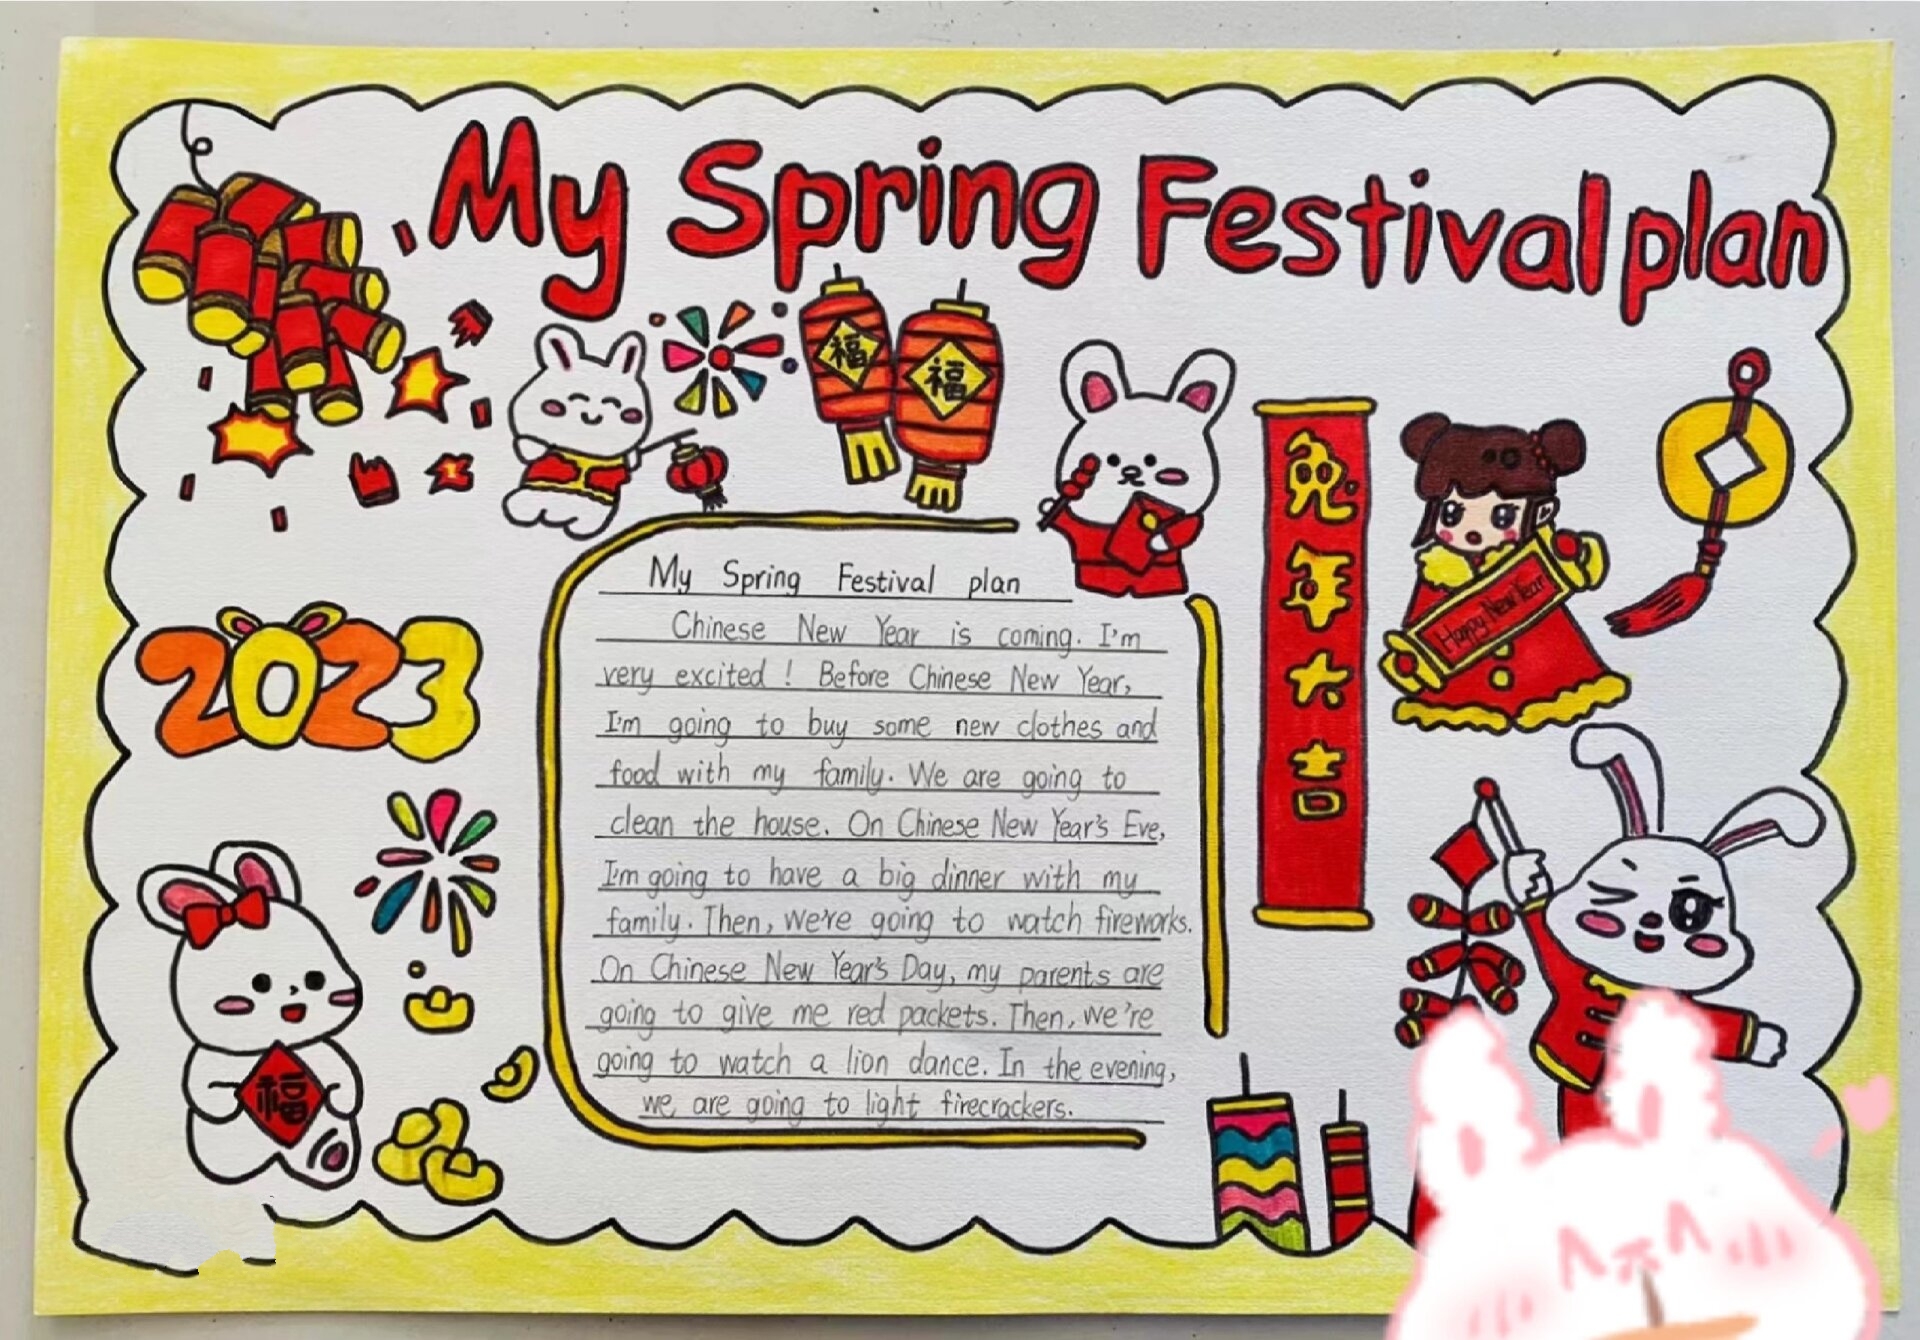 My Spring Festival plan
福
福
兔年大吉
Happy New Year
2023
福
My Spring Festival plan
Chinese New Year is coming. I'm
very excited! Before Chinese New Year,
I'm going to buy some new clothes and
food with my family. We are going to
clean the house. On Chinese New Year's Eve,
I'm going to have a big dinner with my
family. Then, we're going to watch fireworks.
On Chinese New Year's Day, my parents are
going to give me red packets. Then, we're
going to watch a lion dance. In the evening,
we are going to light firecrackers.